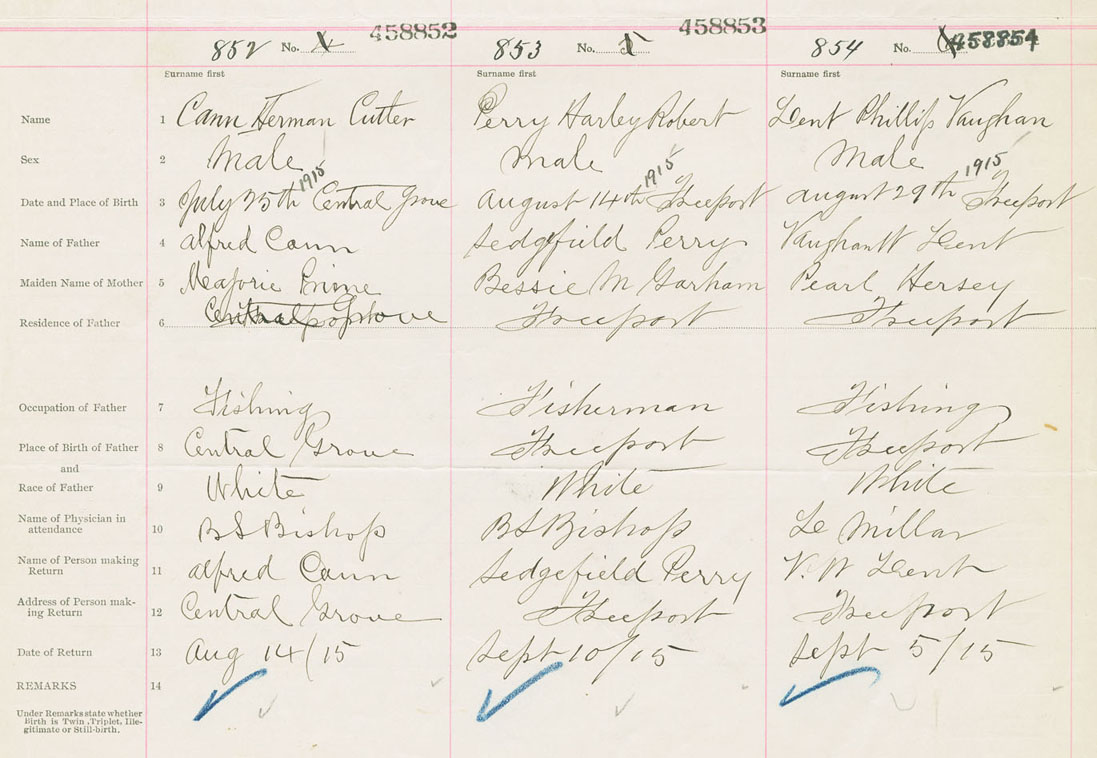 852 No. 458852 853 No. 458853 854 No. 458854
Surname first Surname first Surname first
Name 1 Cann Herman Cutler Perry Harley Robert Dent Phillip Vaughan
Sex 2 Male Male Male
1915 1915 1915
Date and Place of Birth 3 July 25th Central Grove August 14th Freeport august 29th Freeport
Name of Father 4 alfred Cann Sedgefield Perry Vaughan W Dent
Maiden Name of Mother 5 Marjorie Prime Bessie M Gorham Pearl Hersey
Residence of Father 6 Central Grove Freeport Freeport
Occupation of Father 7 Fishing Fisherman Fishing
Place of Birth of Father 8 Central Grove Freeport Freeport
and
Race of Father 9 White White White
Name of Physician in
attendance 10 BS Bishop BS Bishop Le Millar
Name of Person making
Return 11 alfred Cann Sedgefield Perry V. W Dent
Address of Person mak-
ing Return 12 Central Grove Freeport Freeport
Date of Return 13 Aug 14/15 Sept 10/15 Sept 5/15
REMARKS 14
Under Remarks state whether
Birth is Twin, Triplet, Ille-
gitimate or Still-birth.